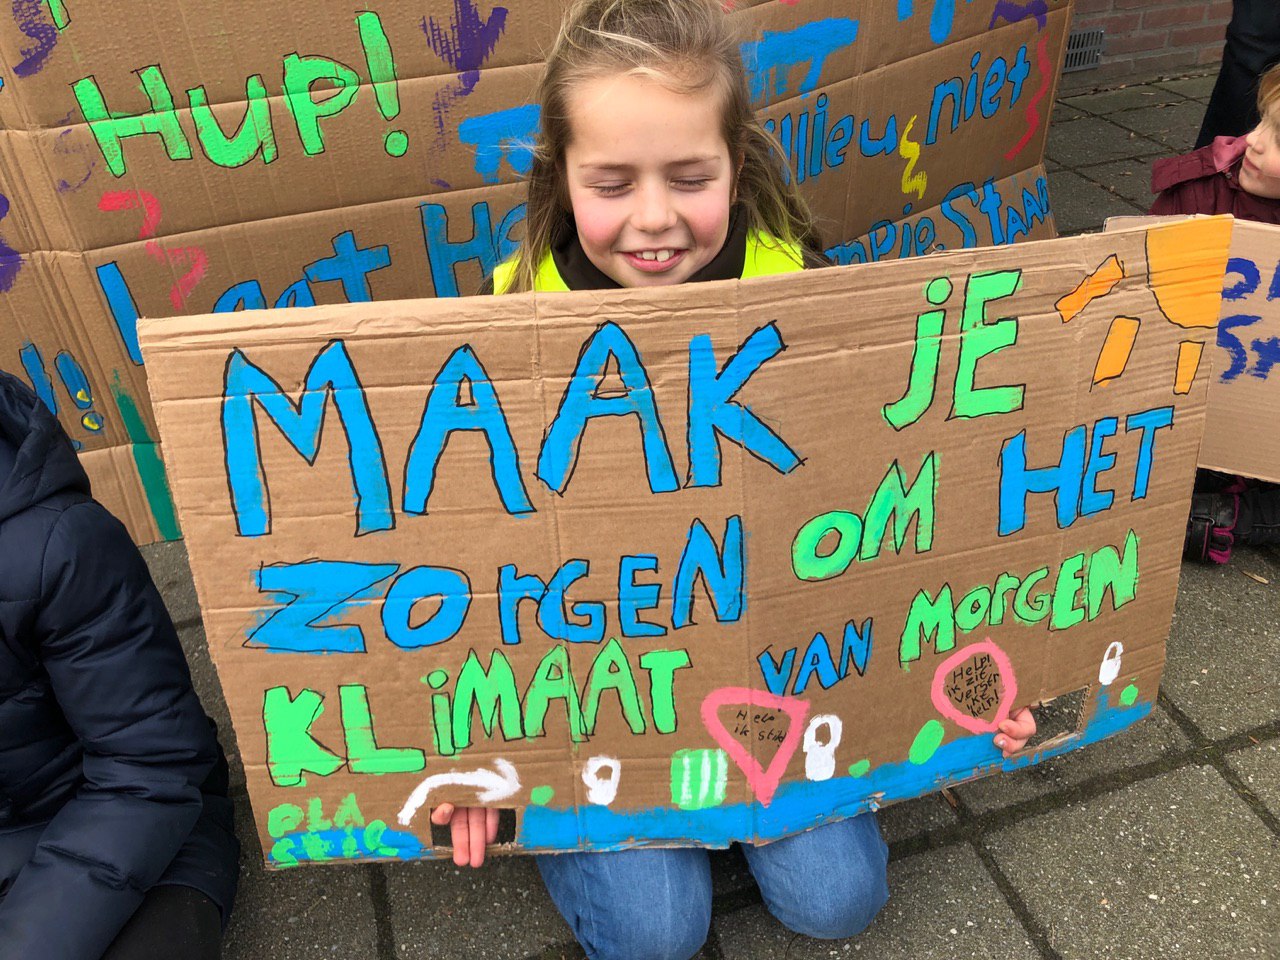 HUP!
Millieu niet
Laat H
Je Staan
MAAK JE
ZORGEN OM HET
KLiMAAT VAN MORGEN
Help!
ik stik
Help!
ik zit
verstr
ikt
help!
PLA
StiC